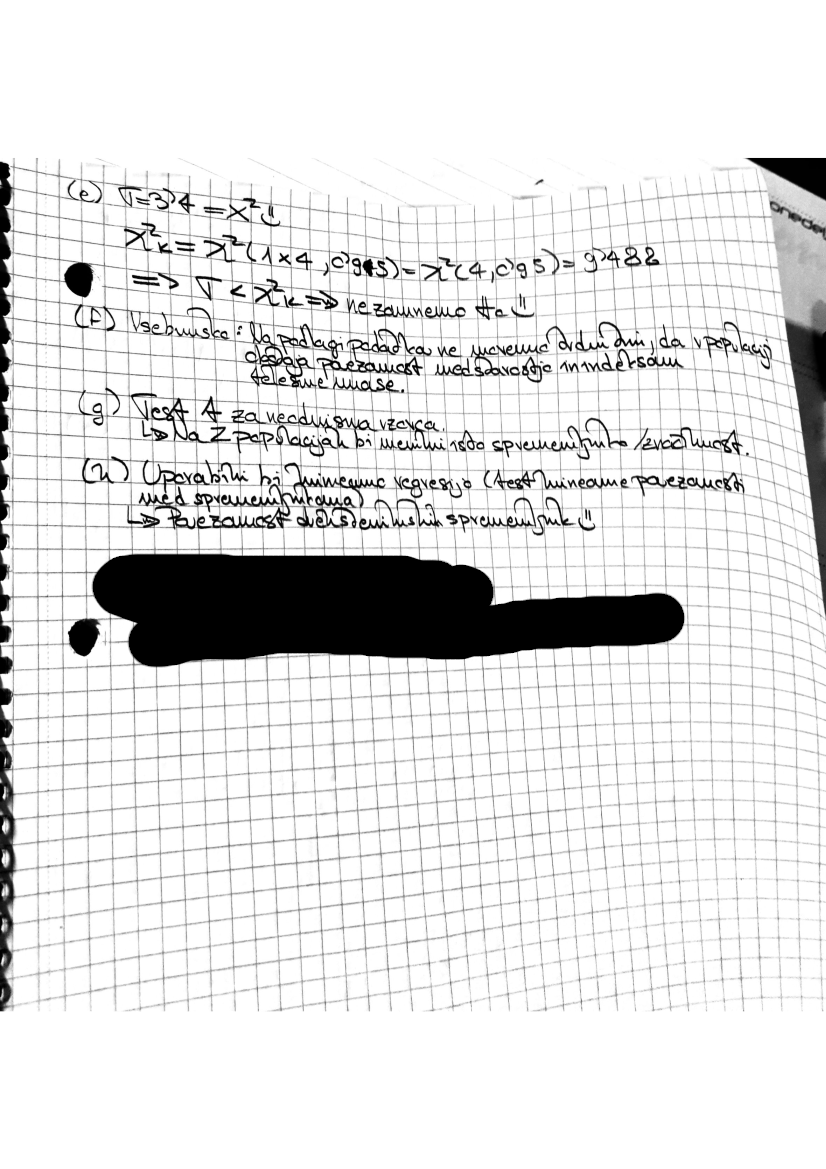 (e) T=3,4 = χ² ü
χ²k = χ²(1×4, 0,95) = χ²(4, 0,95) = 9,488
=> T < χ²k => ne zavrnemo H₀ ü
(f) Vsebinsko: Na podlagi podatka ne moremo trditi, da v populaciji
obstaja povezanost med starostjo in indeksom
telesne mase.
(g) Test t za neodvisna vzorca.
↳ Na 2 populacijah bi merili isto spremenljivko
(h) Uporabili bi linearno regresijo (test linearne povezanosti
med spremenljivkama)
↳ Povezanost dveh številskih spremenljivk ü
onedel